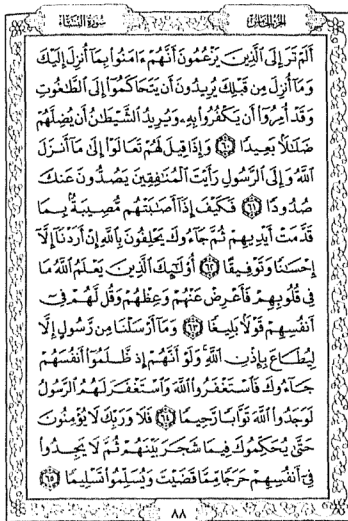 الجزء الخامس سورة النساء
أَلَمْ تَرَ إِلَى ٱلَّذِينَ يَزْعُمُونَ أَنَّهُمْ ءَامَنُوا۟ بِمَآ أُنزِلَ إِلَيْكَ
وَمَآ أُنزِلَ مِن قَبْلِكَ يُرِيدُونَ أَن يَتَحَاكَمُوٓا۟ إِلَى ٱلطَّـٰغُوتِ
وَقَدْ أُمِرُوٓا۟ أَن يَكْفُرُوا۟ بِهِۦ وَيُرِيدُ ٱلشَّيْطَـٰنُ أَن يُضِلَّهُمْ
ضَلَـٰلًۢا بَعِيدًا ٦٠ وَإِذَا قِيلَ لَهُمْ تَعَالَوْا۟ إِلَىٰ مَآ أَنزَلَ
ٱللَّهُ وَإِلَى ٱلرَّسُولِ رَأَيْتَ ٱلْمُنَـٰفِقِينَ يَصُدُّونَ عَنكَ
صُدُودًا ٦١ فَكَيْفَ إِذَآ أَصَـٰبَتْهُم مُّصِيبَةٌۢ بِمَا
قَدَّمَتْ أَيْدِيهِمْ ثُمَّ جَآءُوكَ يَحْلِفُونَ بِٱللَّهِ إِنْ أَرَدْنَآ إِلَّآ
إِحْسَـٰنًا وَتَوْفِيقًا ٦٢ أُو۟لَـٰٓئِكَ ٱلَّذِينَ يَعْلَمُ ٱللَّهُ مَا
فِى قُلُوبِهِمْ فَأَعْرِضْ عَنْهُمْ وَعِظْهُمْ وَقُل لَّهُمْ فِىٓ
أَنفُسِهِمْ قَوْلًۢا بَلِيغًا ٦٣ وَمَآ أَرْسَلْنَا مِن رَّسُولٍ إِلَّا
لِيُطَاعَ بِإِذْنِ ٱللَّهِ وَلَوْ أَنَّهُمْ إِذ ظَّلَمُوٓا۟ أَنفُسَهُمْ
جَآءُوكَ فَٱسْتَغْفَرُوا۟ ٱللَّهَ وَٱسْتَغْفَرَ لَهُمُ ٱلرَّسُولُ
لَوَجَدُوا۟ ٱللَّهَ تَوَّابًا رَّحِيمًا ٦٤ فَلَا وَرَبِّكَ لَا يُؤْمِنُونَ
حَتَّىٰ يُحَكِّمُوكَ فِيمَا شَجَرَ بَيْنَهُمْ ثُمَّ لَا يَجِدُوا۟
فِىٓ أَنفُسِهِمْ حَرَجًا مِّمَّا قَضَيْتَ وَيُسَلِّمُوا۟ تَسْلِيمًا ٦٥
٨٨